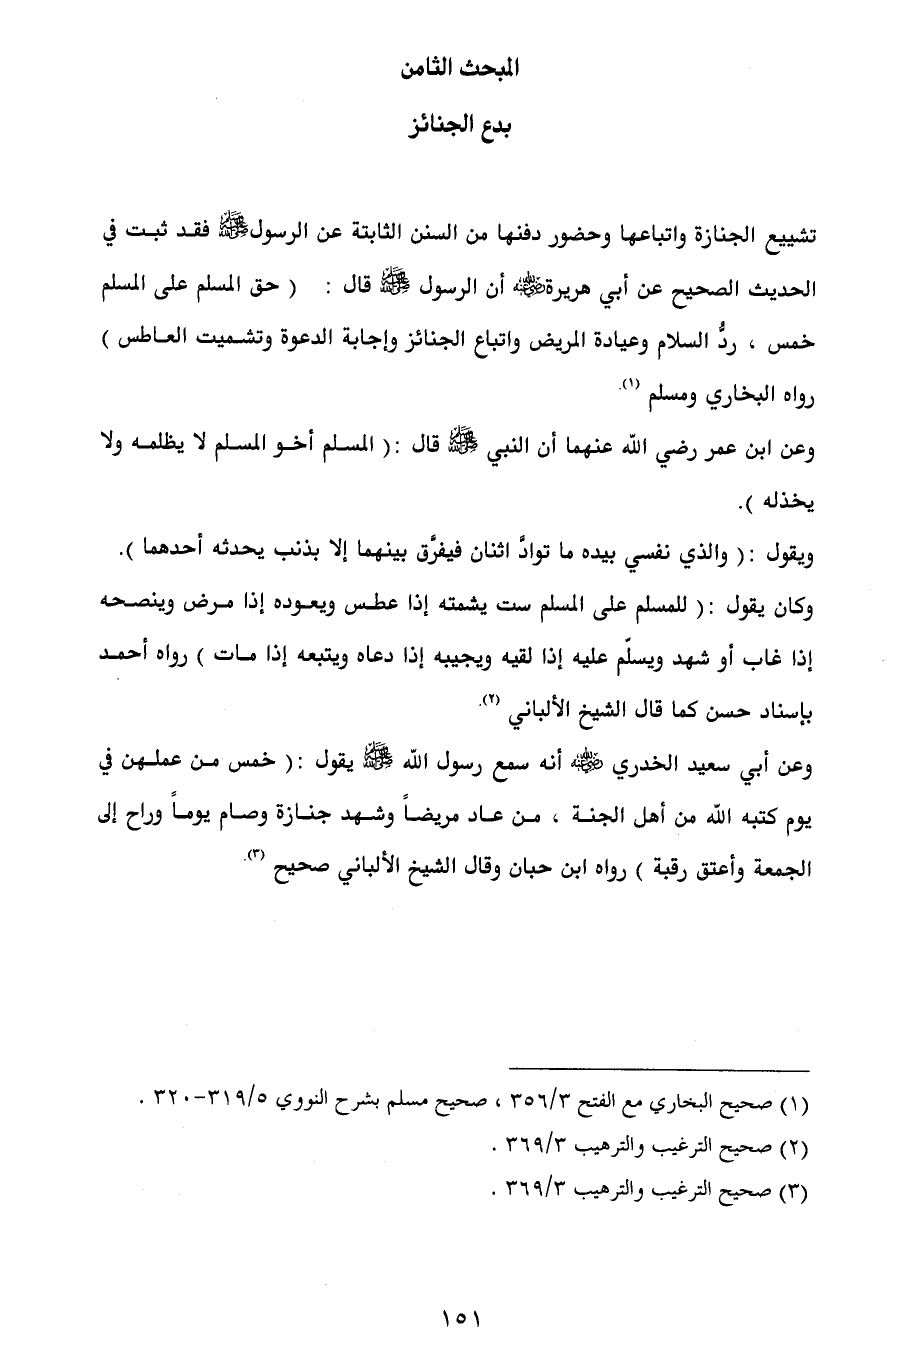 المبحث الثامن
بدع الجنائز
تشييع الجنازة واتباعها وحضور دفنها من السنن الثابتة عن الرسول ﷺ فقد ثبت في
الحديث الصحيح عن أبي هريرة رضي الله عنه أن الرسول ﷺ قال : ( حق المسلم على المسلم
خمس ، ردُّ السلام وعيادة المريض واتباع الجنائز وإجابة الدعوة وتشميت العاطس )
رواه البخاري ومسلم (١).
وعن ابن عمر رضي الله عنهما أن النبي ﷺ قال :( المسلم أخو المسلم لا يظلمه ولا
يخذله ).
ويقول :( والذي نفسي بيده ما توادَّ اثنان فيفرَّق بينهما إلا بذنب يحدثه أحدهما ).
وكان يقول :( للمسلم على المسلم ست يشمته إذا عطس ويعوده إذا مرض وينصحه
إذا غاب أو شهد ويسلّم عليه إذا لقيه ويجيبه إذا دعاه ويتبعه إذا مات ) رواه أحمد
بإسناد حسن كما قال الشيخ الألباني (٢).
وعن أبي سعيد الخدري رضي الله عنه أنه سمع رسول الله ﷺ يقول :( خمس من عملهن في
يوم كتبه الله من أهل الجنة ، من عاد مريضاً وشهد جنازة وصام يوماً وراح إلى
الجمعة وأعتق رقبة ) رواه ابن حبان وقال الشيخ الألباني صحيح (٣).
(١) صحيح البخاري مع الفتح ٣٥٦/٣ ، صحيح مسلم بشرح النووي ٣١٩/٥-٣٢٠ .
(٢) صحيح الترغيب والترهيب ٣٦٩/٣ .
(٣) صحيح الترغيب والترهيب ٣٦٩/٣ .
١٥١